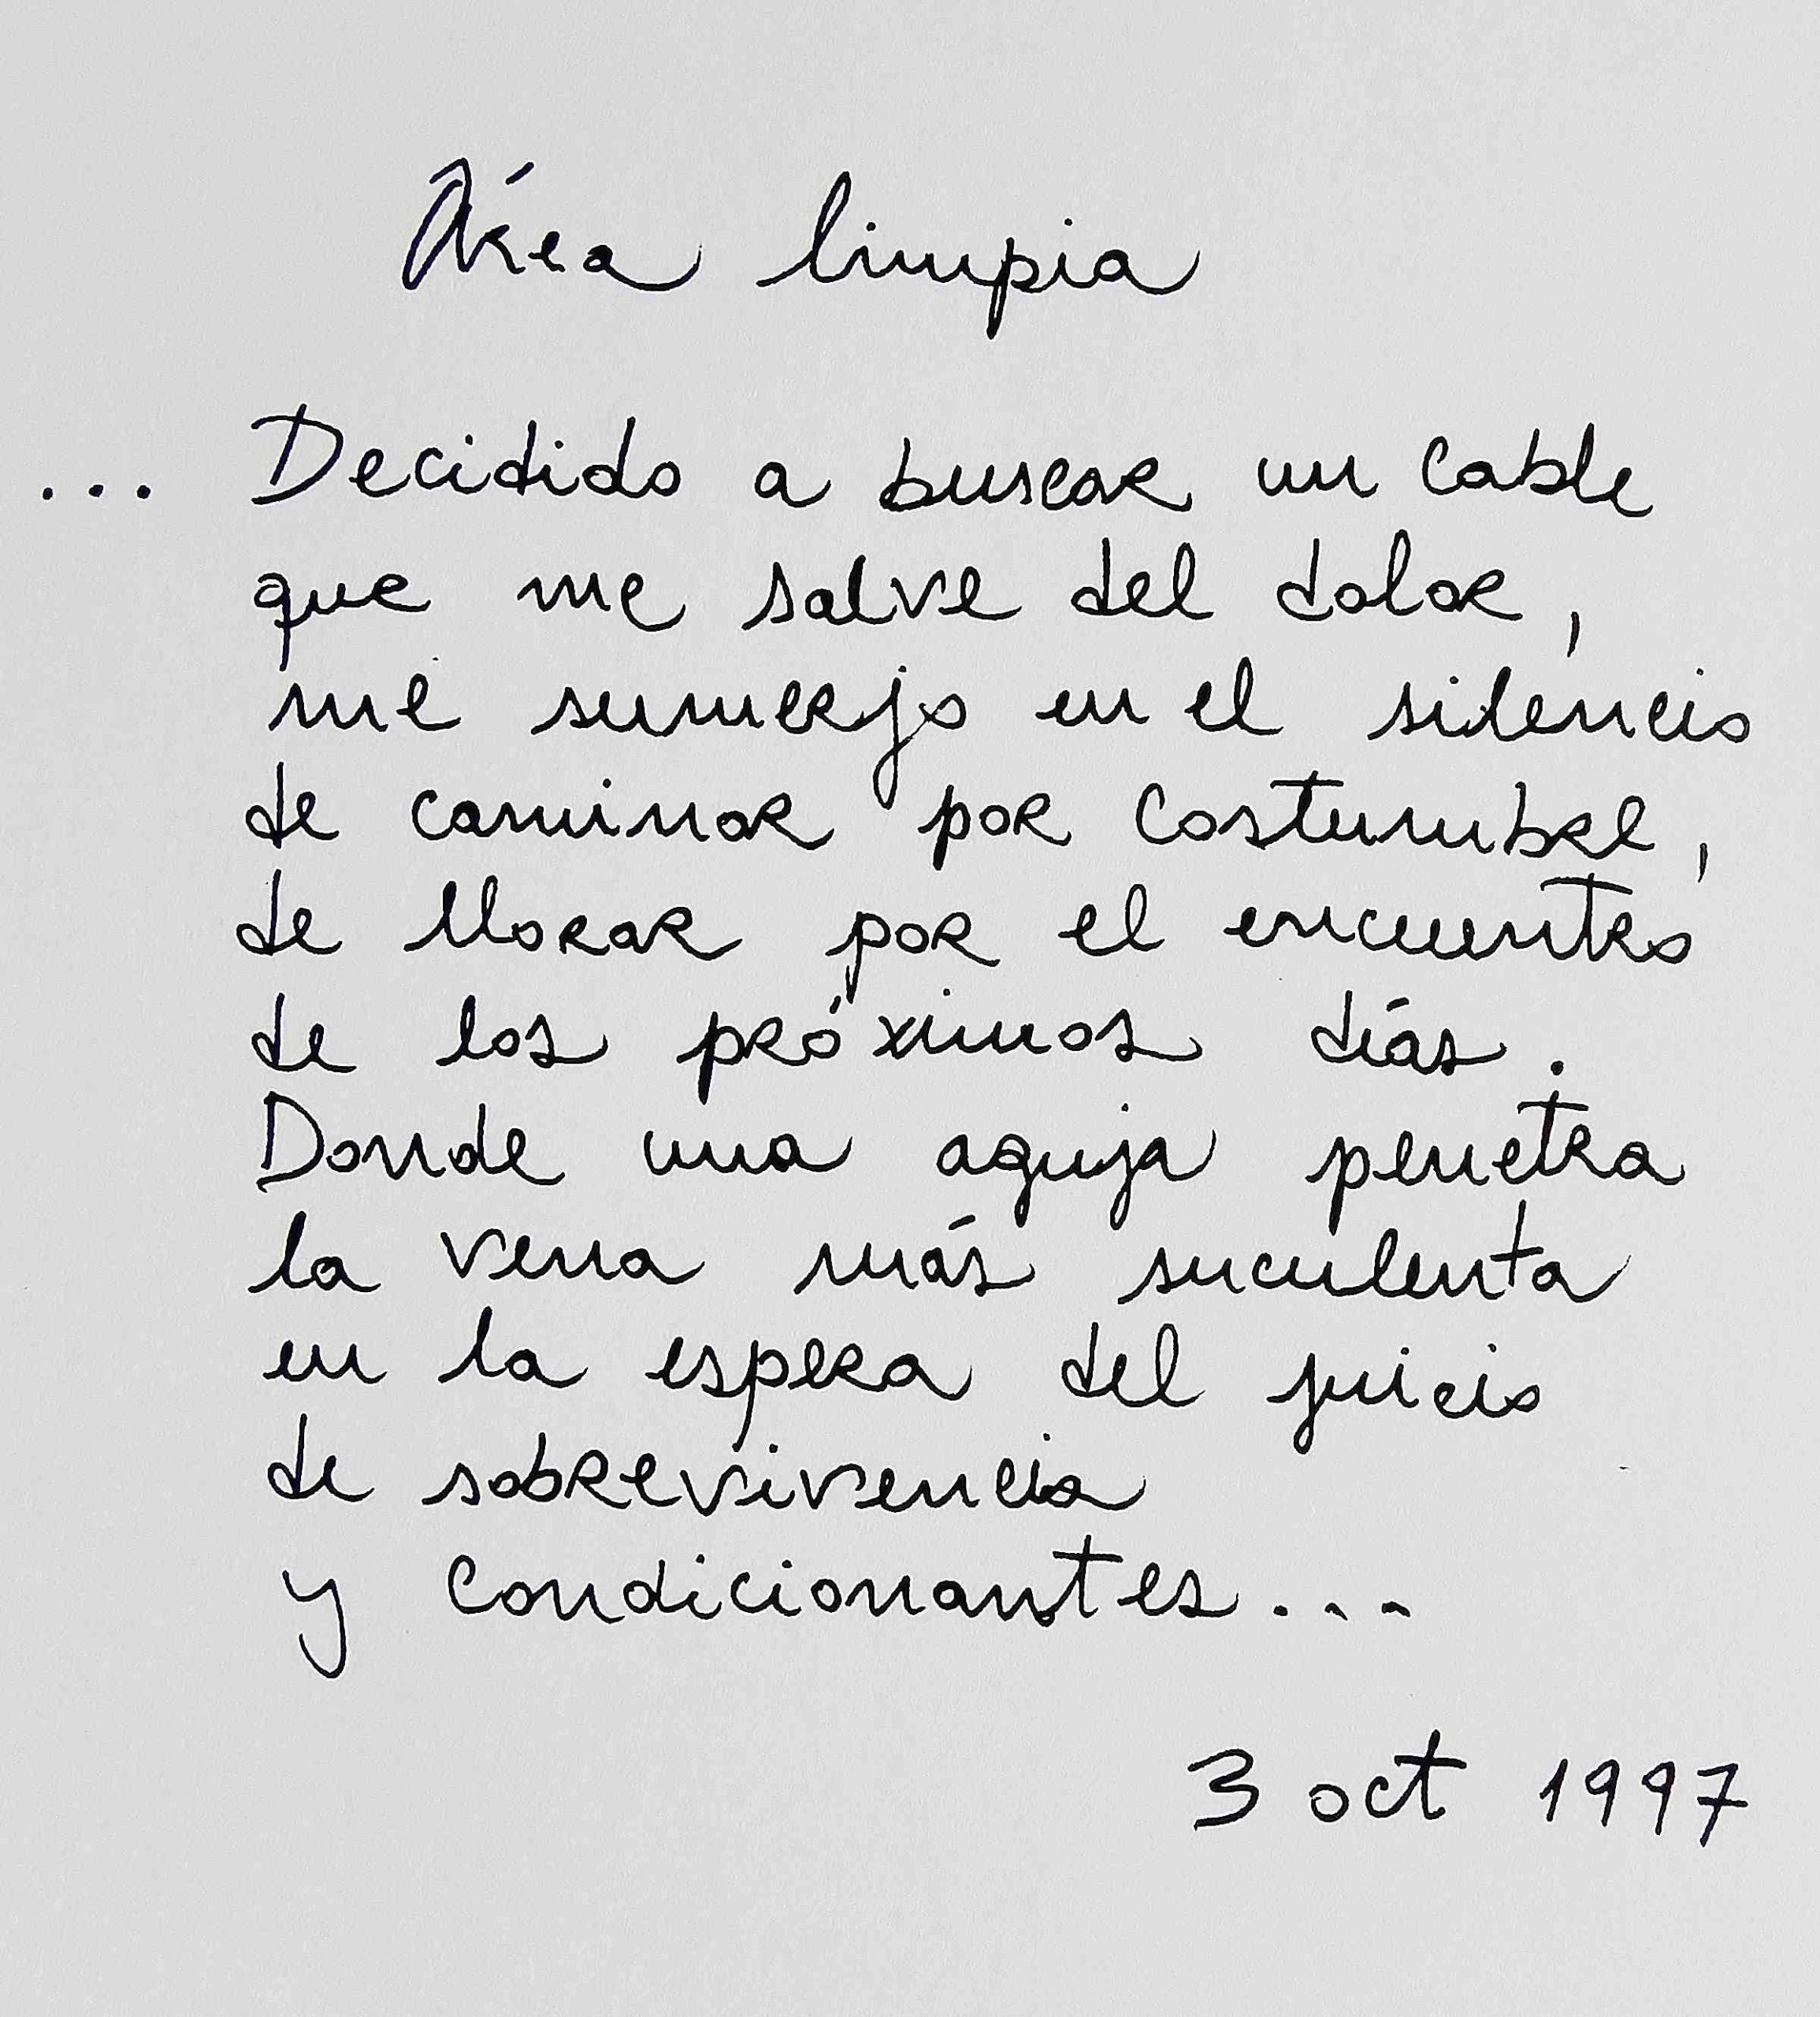 Área limpia
... Decidido a buscar un cable
que me salve del dolor,
me sumerjo en el silencio
de caminar por costumbre,
de llorar por el encuentro
de los próximos días.
Donde una aguja penetra
la vena más suculenta
en la espera del juicio
de sobrevivencia
y condicionantes...
3 oct 1997